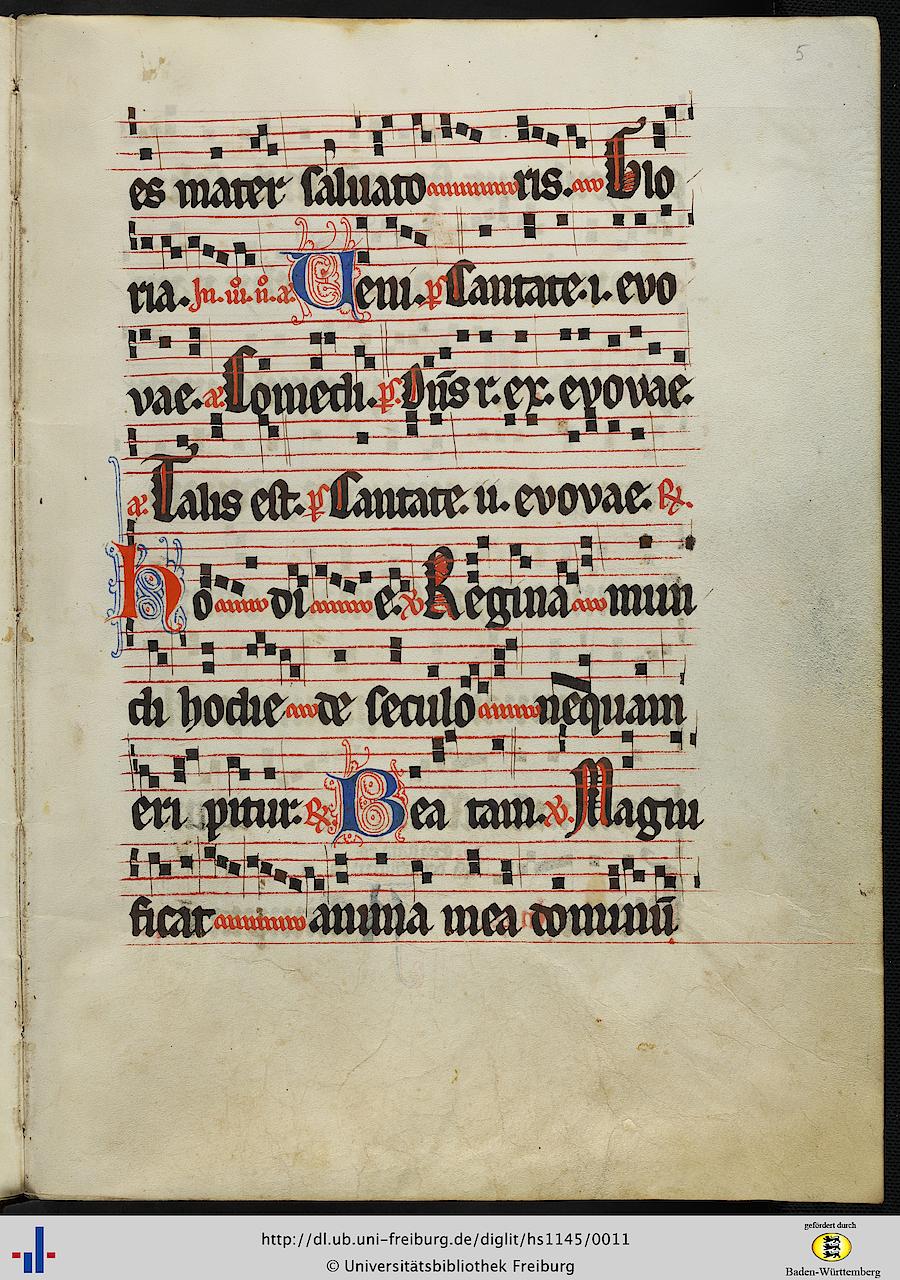 5
es mater saluato ris. Glo
ria. In. iii. n. a. Ueni. ps Cantate. i. evo
vae. a. Comedi. ps. Dn̄s r. ex. evovae.
a. Talis est. ps Cantate. ii. evovae. ℟.
ho di e. ℣ Regina mun
di hodie de seculo nequam
eri pitur. ℟. Bea tam. ℣. Magni
ficat anima mea dominū
http://dl.ub.uni-freiburg.de/diglit/hs1145/0011
© Universitätsbibliothek Freiburg
gefördert durch
Baden-Württemberg